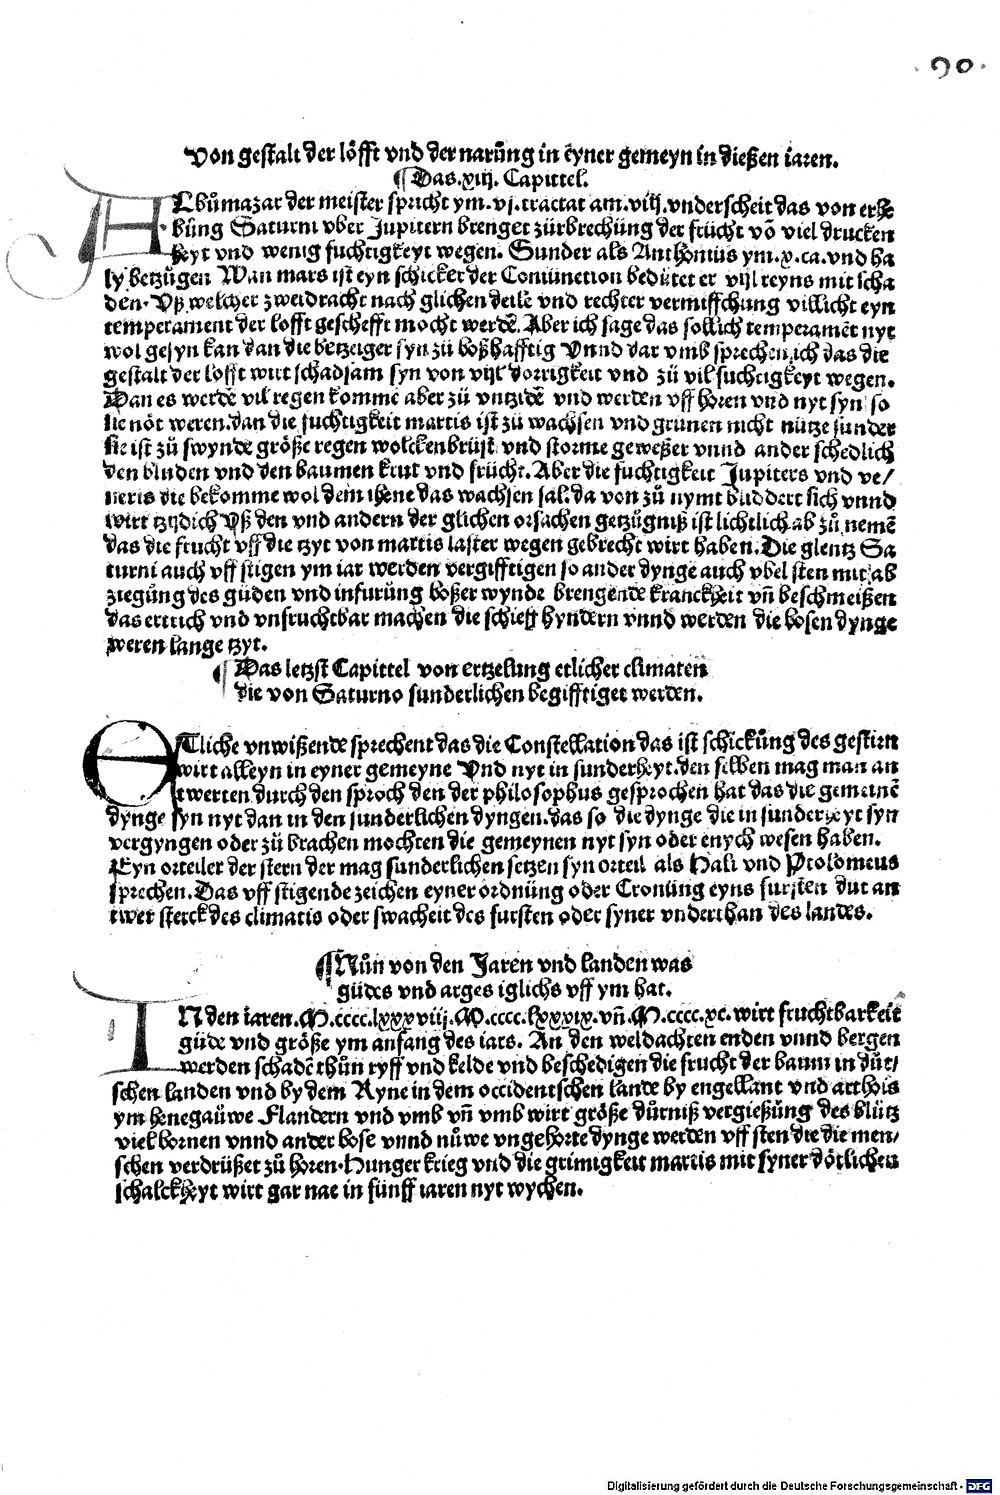 90.
Von gestalt der löfft vnd der narũng in eyner gemeyn in dießen iaren.
¶ Das.xiij. Capittel.
ALbůmazar der meister spricht ym.vj.tractat am.viij.vnderscheit das von erhe
bũng Saturni vber Jupitern brenget zürbrechũng der frücht võ viel drucken
heyt vnd wenig fuchtigkeyt wegen. Sunder als Anthonius ym.x.ca.vnd ha
ly betzügen Wan mars ist eyn schicker der Coniũnction bedütet er viil reyns mit scha
den. Vß welcher zweidracht nach glichen deile vnd rechter vermisschung villicht eyn
temperament der lofft geschefft mocht werdẽ. Aber ich sage das sollich temperamẽt nyt
wol gesyn kan dan die betzeiger syn zü boßhafftig Vnnd dar vmb sprechen ich das die
gestalt der lofft wirt schadsam syn von viil dorrigkeit vnd zü vil fuchtigkeyt wegen.
Dan es werdẽ vil regen kommẽ aber zü vntzidẽ vnd werden vff horen vnd nyt syn so
sie nöt weren.dan die fuchtigkeit martis ist zü wachsen vnd grünen nicht nütze sunder
sie ist zü swynde größe regen wolckenbrüst vnd storme geweßer vnnd ander schedlich
den blüden vnd den baumen krut vnd frücht. Aber die fuchtigkeit Jupiters vnd ve/
neris die bekomme wol dem ihene das wachsen sal.da von zů nymt blüddert sich vnnd
wirt tzydich Vß den vnd andern der glichen orsachen getzügniß ist lichtlich ab zů nemẽ
das die frucht vff die tzyt von martis laster wegen gebrecht wirt haben. Die glentz Sa
turni auch vff stigen ym iar werden vergifftigen so ander dynge auch vbel sten mit ab
ziegũng des güden vnd infurũng boßer wynde brengende kranckheit vñ beschmeißen
das ertrich vnd vnfruchtbar machen die schieff hyndern vnnd werden die bosen dynge
weren lange tzyt.
¶ Das letzst Capittel von ertzelung etlicher climaten
die von Saturno sunderlichen begifftiget werden.
ETliche vnwißende sprechent das die Constellation das ist schickũng des gestirn
wirt alleyn in eyner gemeyne Vnd nyt in sunderheyt.den selben mag man an
twerten durch den sproch den der philosophus gesprochen hat das die gemeinẽ
dynge syn nyt dan in den sunderlichen dyngen.das so die dynge die in sunderheyt syn
vergyngen oder zü brachen mochten die gemeynen nyt syn oder enych wesen haben.
Eyn orteiler der stern der mag sunderlichen setzen syn orteil als Hali vnd Ptolomeus
sprechen. Das vff stigende zeichen eyner ordnũng oder Cronũng eyns fursten dut an
twer sterck des climatis oder swacheit des fursten oder syner vnderthan des landes.
¶ Nůn von den Jaren vnd landen was
güdes vnd arges iglichs vff ym hat.
INden iaren.M.cccc.lxxxviij.M.cccc.lxxxix.vñ.M.cccc.xc.wirt fruchtbarkeit
güde vnd größe ym anfang des iars. An den weldachten enden vnnd bergen
werden schadẽ thůn ryff vnd kelde vnd beschedigen die frucht der baum in düt/
schen landen vnd by dem Ryne in dem occidentschen lande by engellant vnd arthois
ym henegaüwe Flandern vnd vmb vñ vmb wirt größe dürniß vergießũng des blütz
viel bornen vnnd ander bose vnnd nůwe vngehorte dynge werden vff sten die die men/
schen verdrüßet zů horen.Hunger krieg vnd die grimigkeit martis mit syner dötlichen
schalckheyt wirt gar nae in fünff iaren nyt wychen.
Digitalisierung gefördert durch die Deutsche Forschungsgemeinschaft - DFG